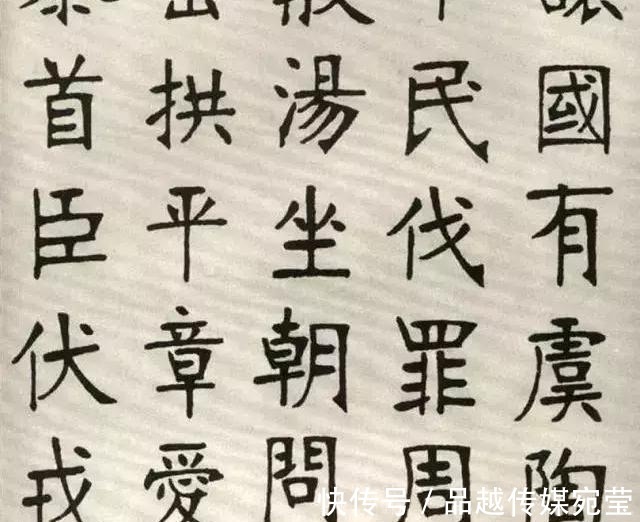 國有虞陶
民伐罪周
湯坐朝問
拱平章愛
首臣伏戎
快传号 / 品越传媒宛莹